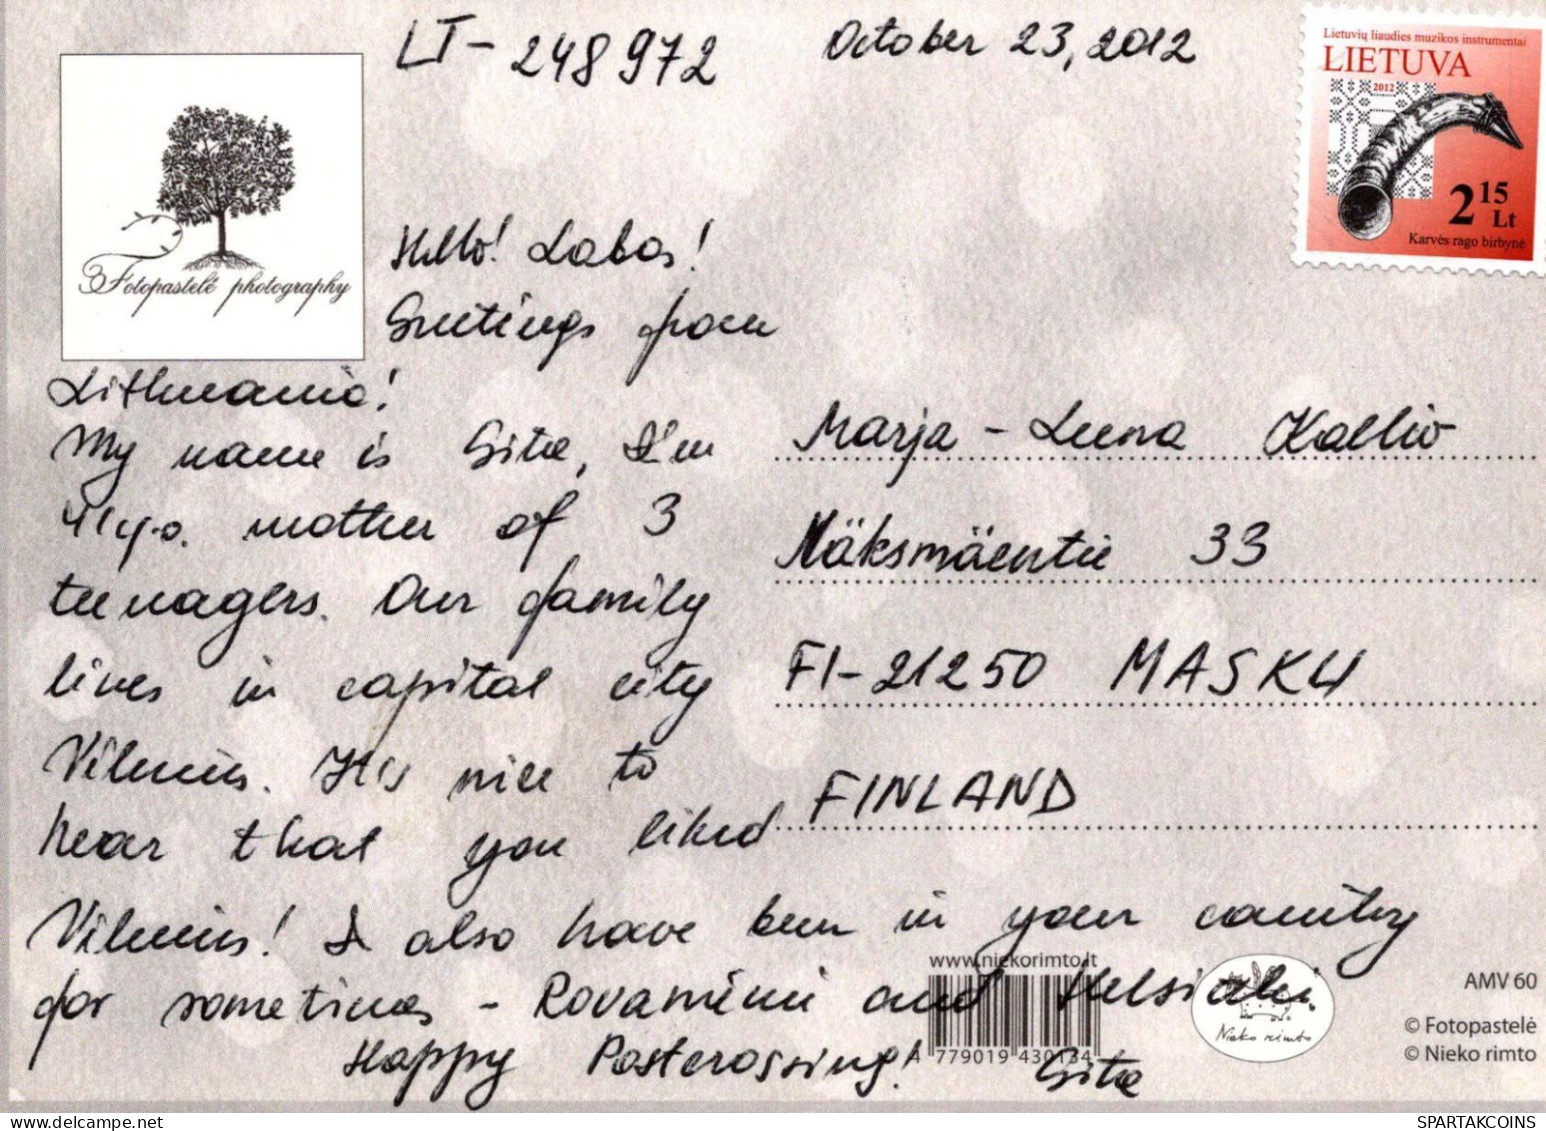 LT-248972
October 23, 2012
Lietuvių liaudies muzikos instrumentai
LIETUVA
2012
2 15 Lt
Karvės rago birbynė
Fotopastelė photography
Hello! Labas!
Greetings from
Lithuania!
My name is Gita, I'm
41 y.o. mother of 3
teenagers. Our family
lives in capital city
Vilnius. It's nice to
hear that you liked
Vilnius! I also have been in your country
for sometimes - Rovaniemi and Helsinki.
Happy Postcrossing! Gita
Marja-Leena Kallio
Näksmäentie 33
FI-21250 MASKU
FINLAND
www.niekorimto.lt
779019 430134
Nieko rimto
AMV 60
© Fotopastelė
© Nieko rimto
SPARTAKCOINS